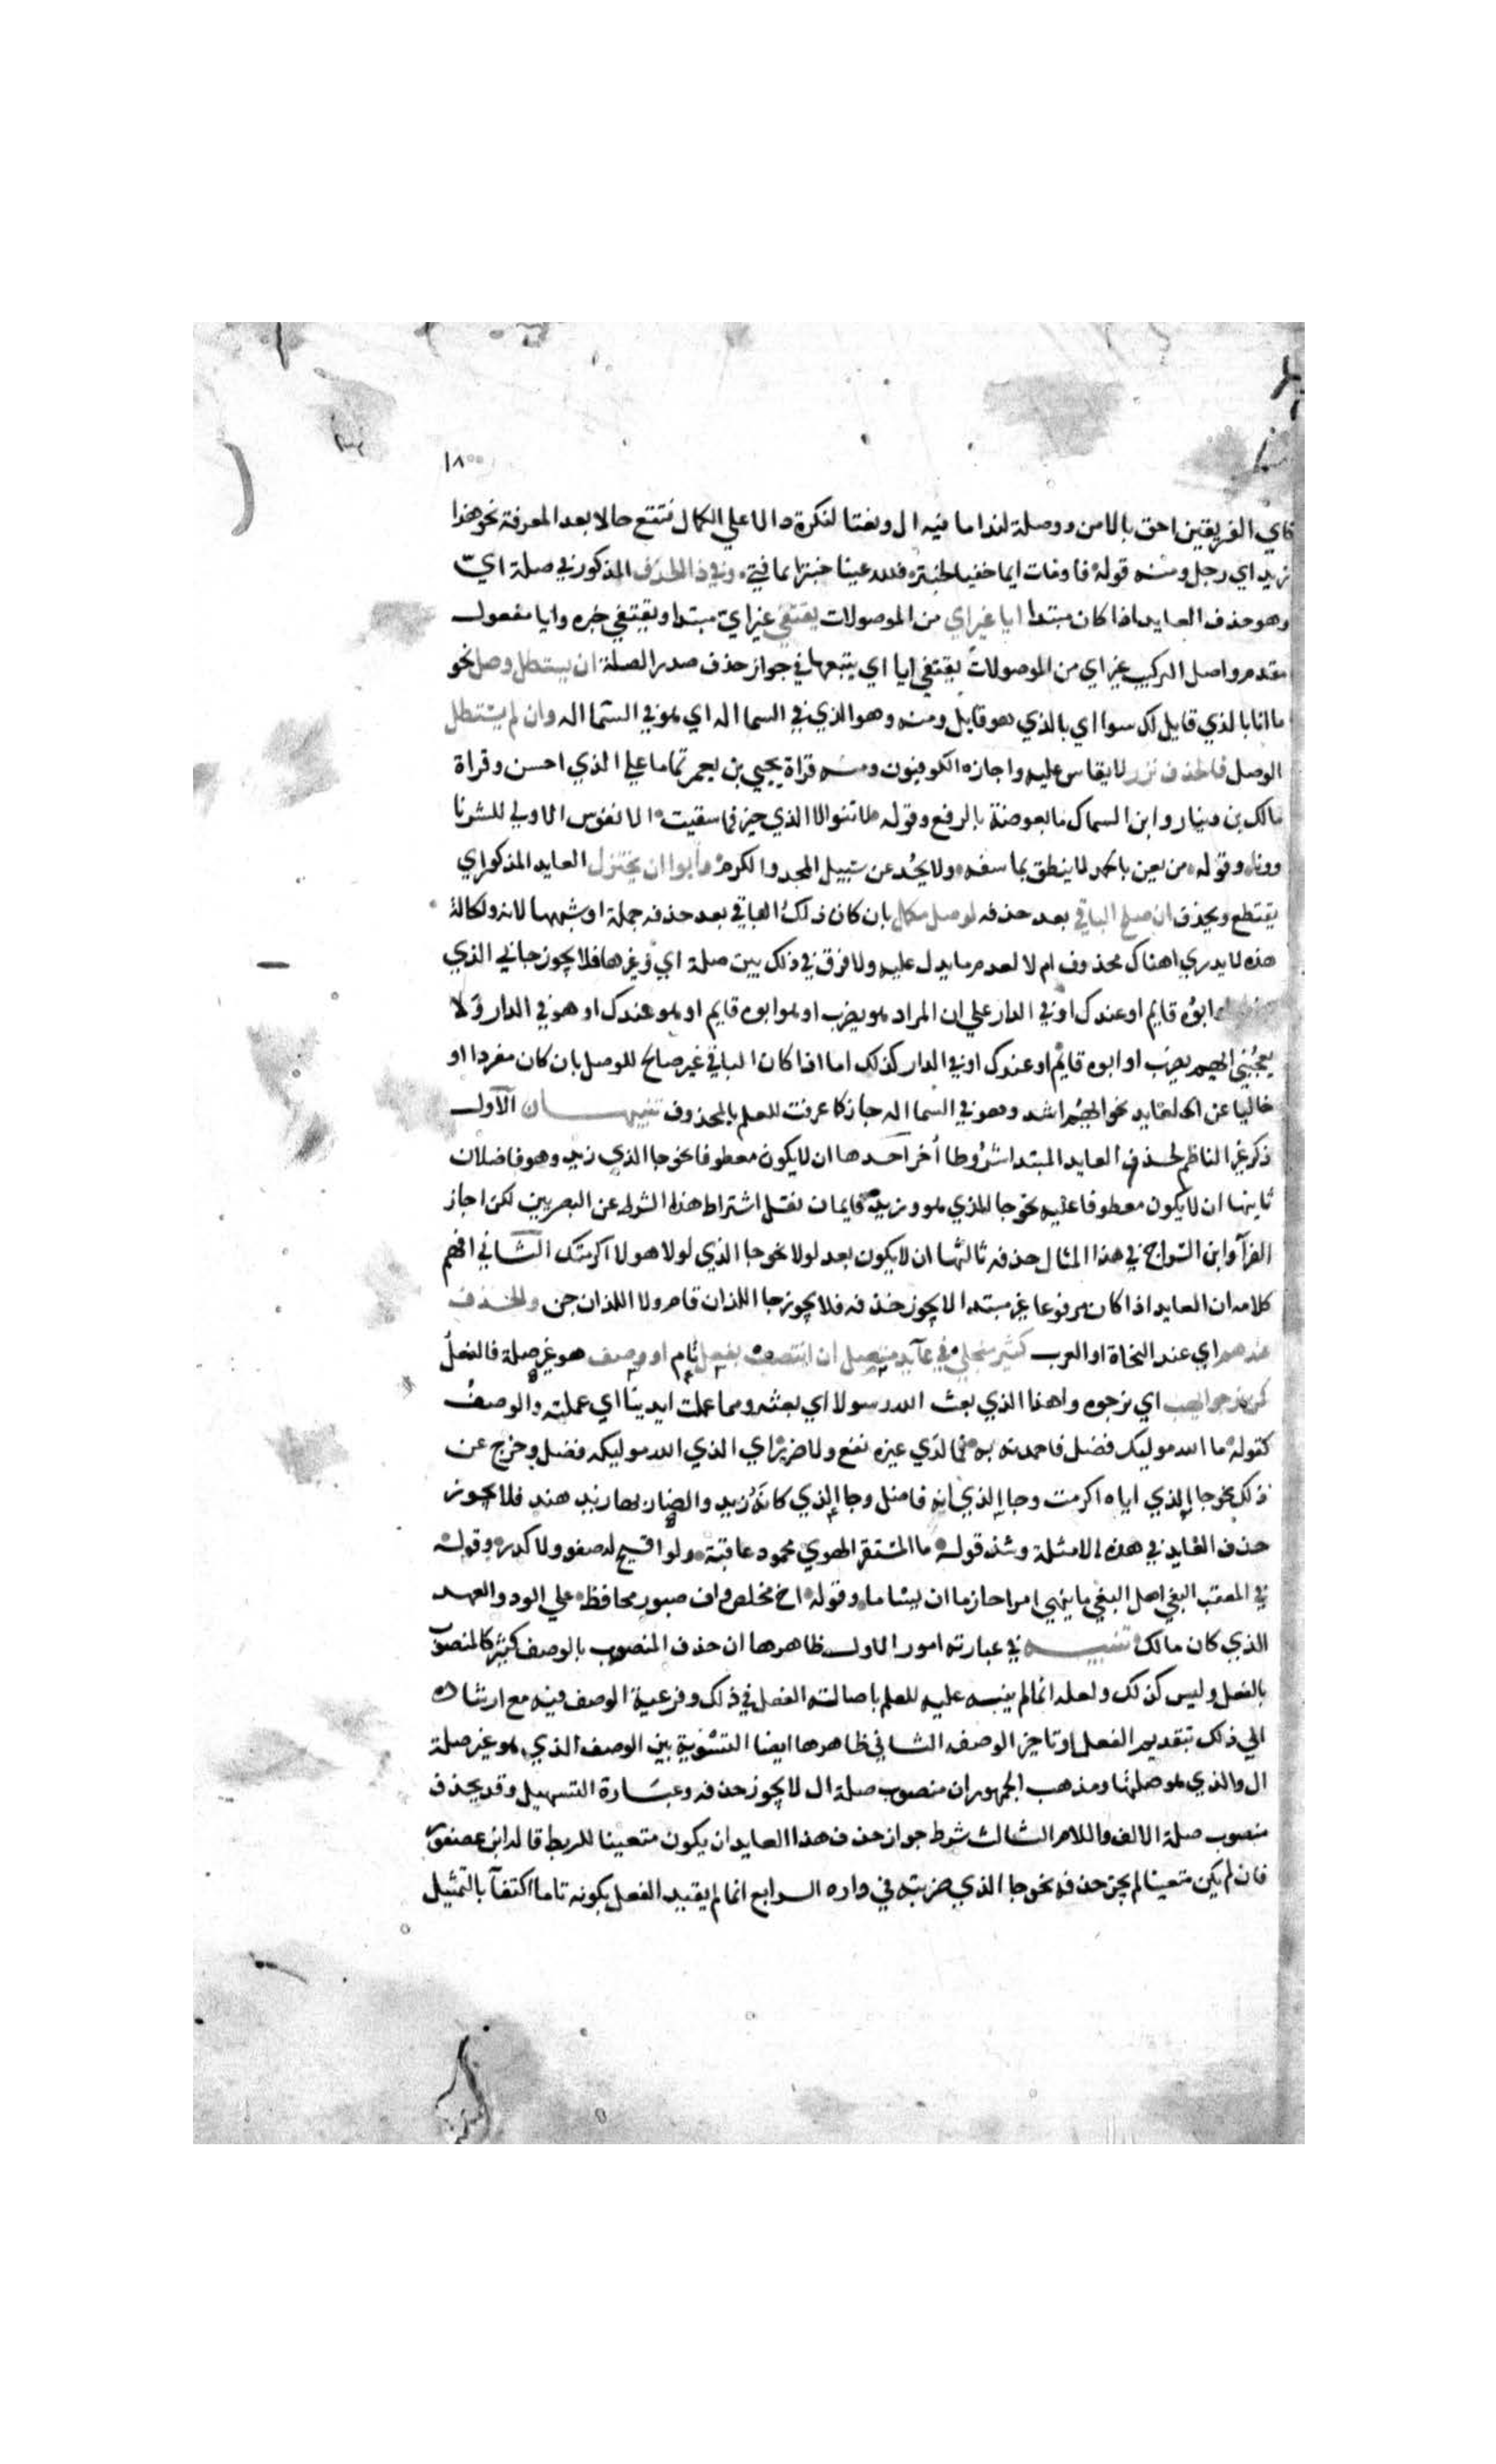 ١٨
فاي الفريقين احق بالامن ووصلة لندا ما فيه ال ونعتا لنكرة دالا علي الكمال فتتع حالا بعد المعرفة نحو هذا
زيد اي رجل ومنه قوله فاومات ايما خفيا لحبتره فلله عينا حبترا يما فتي وفي ذا الحذف المذكور في صلة اي
وهو حذف العايد اذا كان مبتدا ايا غير اي من الموصولات يقتفي غير اي مبتدا ويقتفي خبره وايا مفعول
مقدم واصل التركيب غير اي من الموصولات يقتفي ايا اي يتبعها في جواز حذف صدر الصلة ان يستطل وصل نحو
ما انا بالذي قايل لك سوا اي بالذي هو قايل ومنه وهو الذي في السما اله اي هو في السما اله وان لم يستطل
الوصل فالحذف نزر لا يقاس عليه واجازه الكوفيون ومنه قراة يحيي بن يعمر تماما علي الذي احسن وقراة
مالك بن دينار وابن السماك ما بعوضة بالرفع وقوله لا تنوالا الذي خير فما سقيت الا نفوس الاولي للشرنا
وونا وقوله من يعن بالحمد لا ينطق بما سفه ولا يحد عن سبيل المجد والكرم وابوا ان يختزل العايد المذكور اي
يقتطع ويحذف ان صلح الباقي بعد حذفه لوصل مكمل بان كان ذلك الباقي بعد حذفه جملة او شبهها لانه والحالة
هذه لا يدري اهناك محذوف ام لا لعدم ما يدل عليه ولا فرق في ذلك بين صلة اي وغيرها فلا يجوز جاني الذي
ابوه قايم او عندك او في الدار علي ان المراد هو يضرب او هو ابوه قايم او هو عندك او هو في الدار ولا
يعجبني ايهم يضرب او ابوه قايم او عندك او في الدار كذلك اما اذا كان الباقي غير صالح للوصل بان كان مفردا او
خاليا عن العايد نحو ايهم اشد وهو في السما اله جاز كما عرفت للعلم بالمحذوف تنبيهان الاول
ذكر غير الناظم لحذف العايد المبتدا شروطا اخر احدها ان لا يكون معطوفا نحو جا الذي زيد وهو فاضلان
ثانيها ان لا يكون معطوفا عليه نحو جا الذي هو وزيد قايمان نقل اشتراط هذا الشرط عن البصريين لكن اجاز
الفرا وابن السراج في هذا المثال حذفه ثالثها ان لا يكون بعد لولا نحو جا الذي لولا هو لاكرمتك الثاني افهم
كلامه ان العايد اذا كان مرفوعا غير مبتدا لا يجوز حذفه فلا يجوز جا اللذان قام ولا اللذان جن والحذف
عندهم اي عند النحاة او العرب كثير منجلي في عايد متصل ان انتصب بفعل تام او وصف هو غير صلة فالفعل
كمن نرجو يهب اي نرجوه واهذا الذي بعث الله رسولا اي بعثه ومما عملت ايدينا اي عملته والوصف
كقوله ما الله موليك فضل فاحمدنه به فما لدي غيره نفع ولا ضرر اي الذي الله موليكه فضل وخرج عن
ذلك نحو جا الذي اياه اكرمت وجا الذي انه فاضل وجا الذي كانه زيد والضاربها زيد هند فلا يجوز
حذف العايد في هذه الامثلة وشذ قوله ما المستفز الهوي محمود عاقبة ولو اتيح له صفو ولا كدر وقوله
في المعقب البغي اهل البغي ما ينهي امرا حازما ان يساما وقوله اخ مخلص واف صبور محافظ علي الود والعهد
الذي كان مالك تنبيه في عبارته امور الاول ظاهرها ان حذف المنصوب بالوصف كثير كالمنصوب
بالفعل وليس كذلك ولعله انما لم ينبه عليه للعلم باصالة الفعل في ذلك وفرعية الوصف فيه مع ارشاده
الي ذلك بتقديم الفعل وتاخير الوصف الثاني ظاهرها ايضا التسوية بين الوصف الذي هو غير صلة
ال والذي هو صلتها ومذهب الجمهور ان منصوب صلة ال لا يجوز حذفه وعبارة التسهيل وقد يحذف
منصوب صلة الالف واللام الثالث شرط جواز حذف هذا العايد ان يكون متعينا للربط قاله ابن عصفور
فان لم يكن متعينا لم يجز حذفه نحو جا الذي ضربته في داره الرابع انما لم يقيد الفعل بكونه تاما اكتفا بالتمثيل